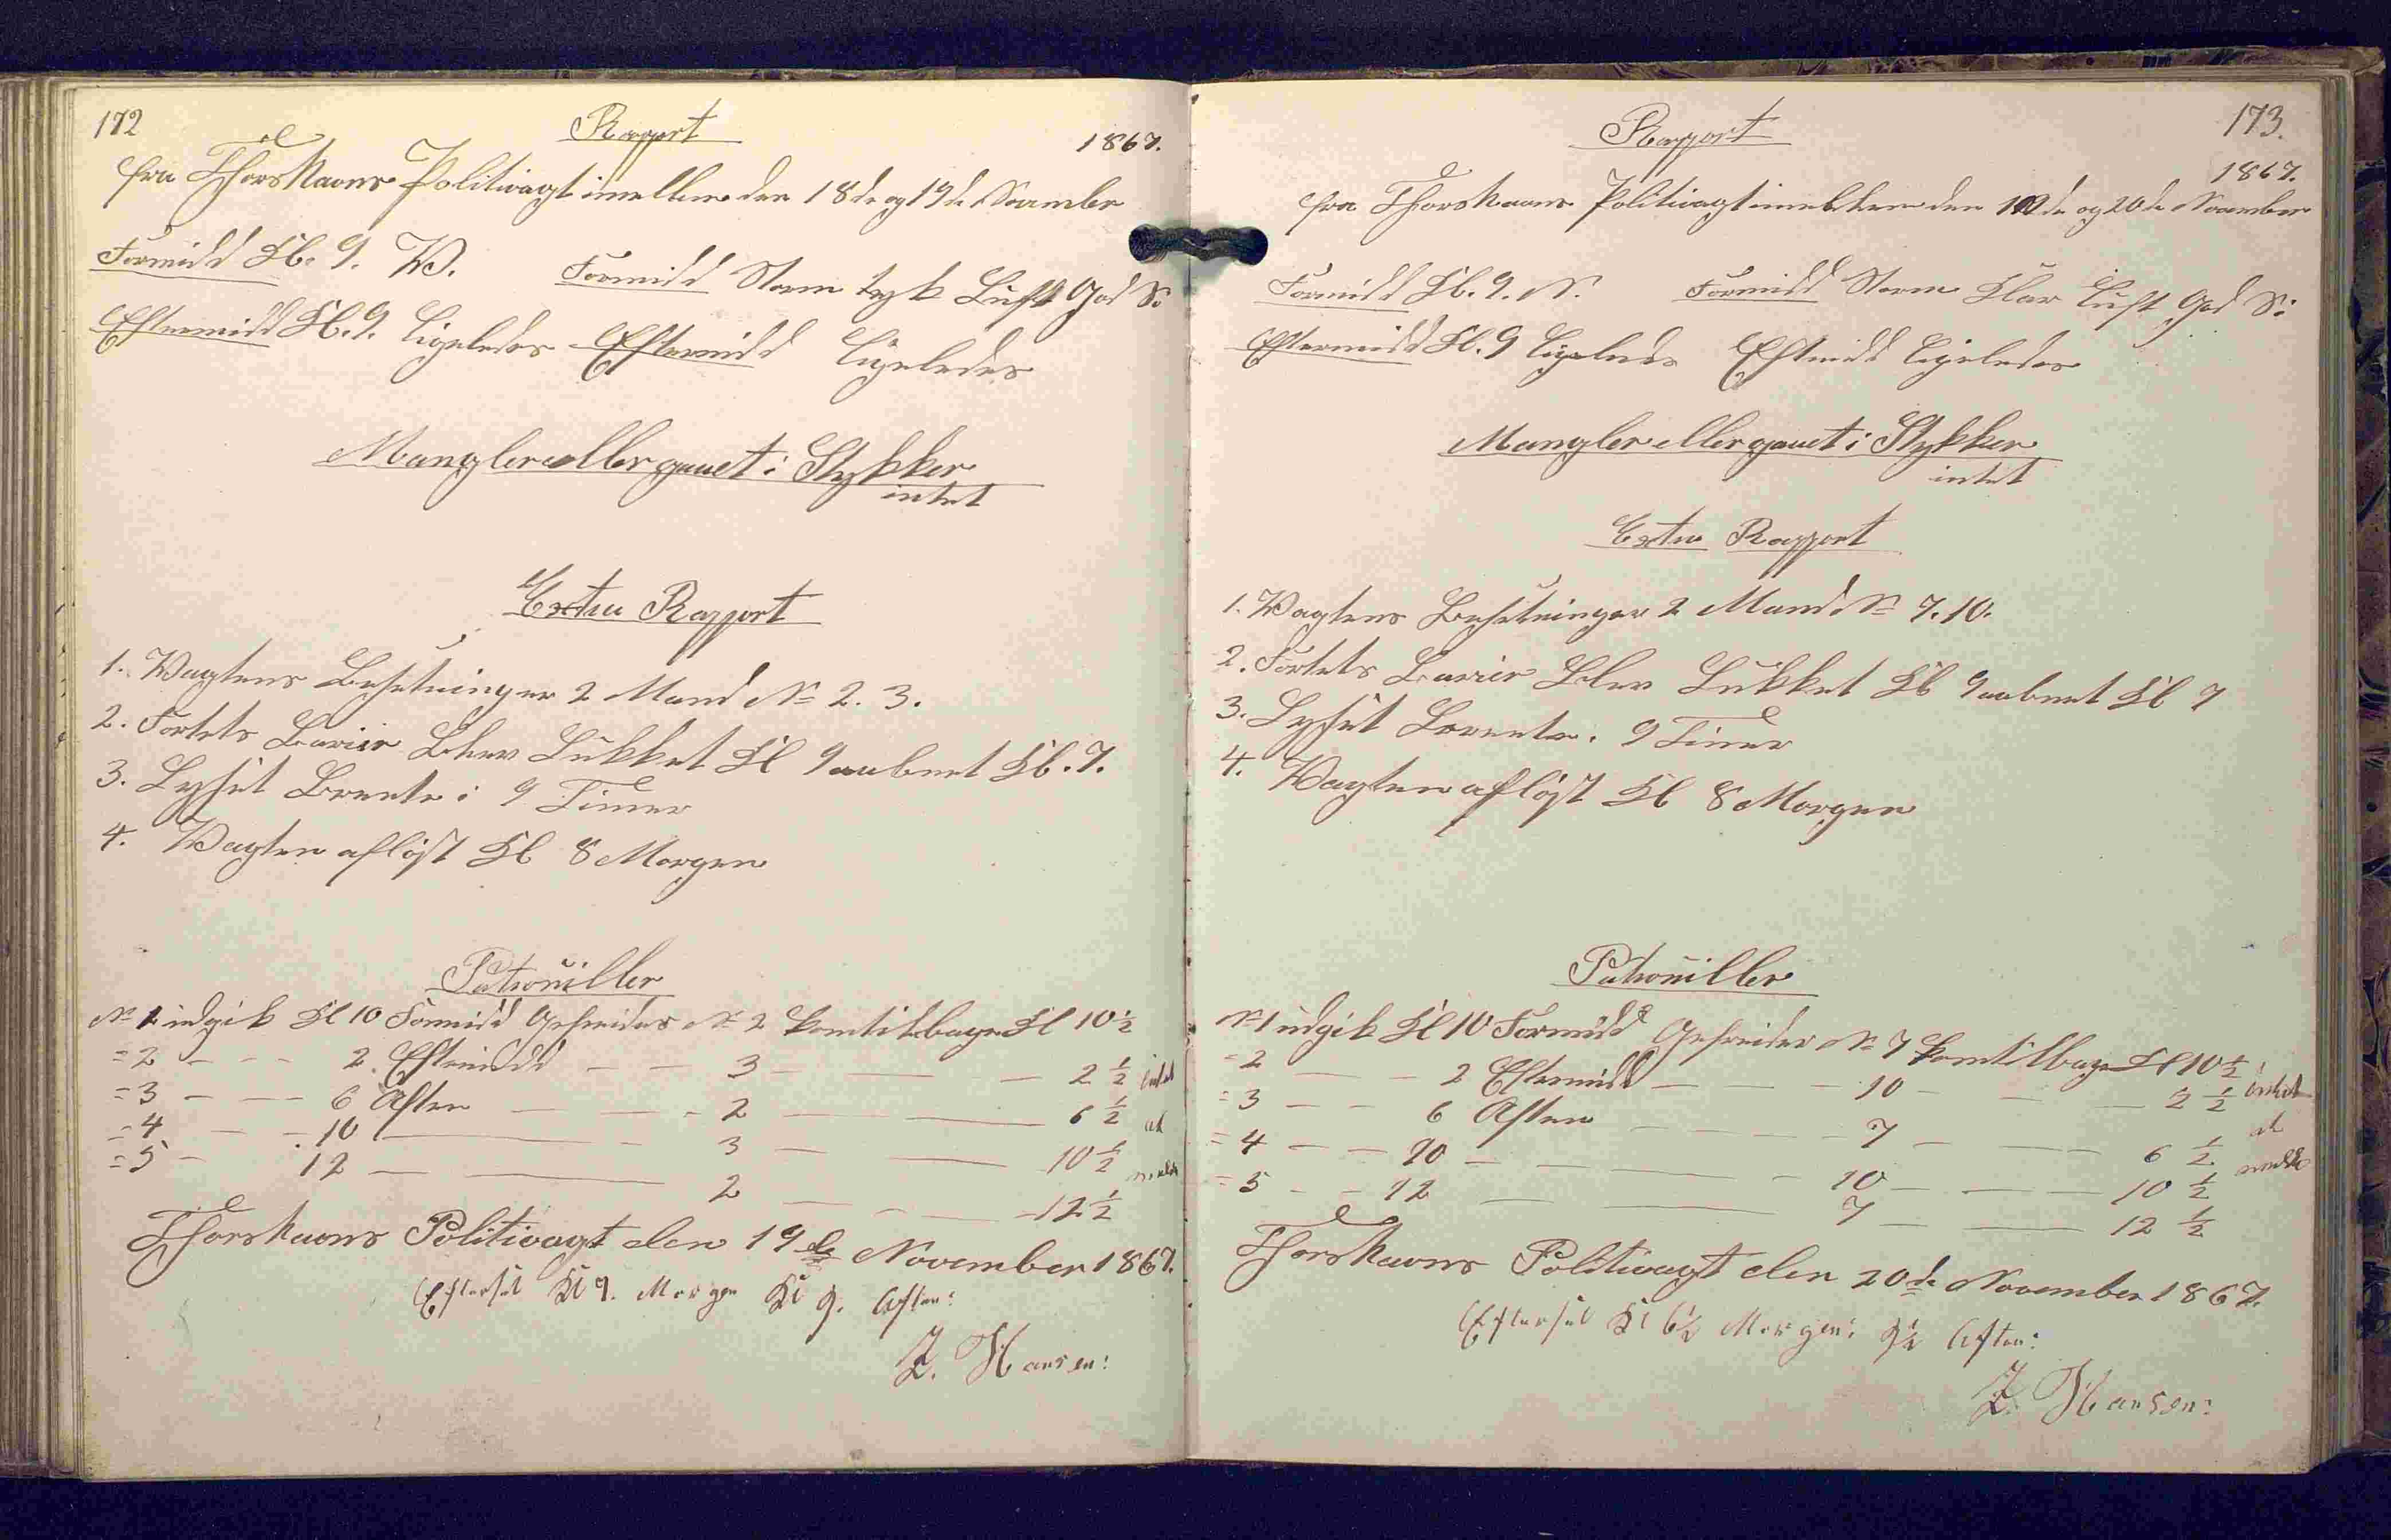 172
Rapport
1867.
fra Thorshavns Politivagt imellem den 18de og 19de November
Formidd Kl. 9. W. Formidd Storm tyk Luft God S:
Eftermidd Kl. 9. Ligeledes Eftermidd Ligeledes
Mangler eller gaaet i Stykker
intet
Extra Rapport
1. Wagtens Besetninger 2 Mand No 2. 3.
2. Fortets Barier Blev Lukket Kl 9 aabnet Kl. 7.
3. Lyset Brente i 9 Timer
4. Wagten afløst Kl 8 Morgen
Patrouiller
No 1 udgik Kl 10 Formidd Gefreider No 2 kom tilbage Kl 10 ½
= 2 - - - 2 Eftmidd - - 3 - - - 2 ½ intet
= 3 - - - 6 Aften - - 2 - 6 ½ at
= 4 - - 10 - - 3 - - 10 ½ melde
= 5 - 12 - - 2 - - - 12 ½
Thorshavns Politivagt den 19de November 1867.
Efterset Kl 9. Morgen Kl 9. Aften:
Z. Hansen:
173.
Rapport
1867.
fra Thorshavns Politivagt imellem den 19de og 20de November
Formidd Kl. 9. N. Formidd Storm Klar Luft God S:
Eftermidd Kl. 9 Ligeledes Eftmidd Ligeledes
Mangler eller gaaet i Stykker
intet
Extra Rapport
1. Wagtens Besetninger 2 Mand No 7. 10.
2. Fortets Barier Blev Lukket Kl 9 aabnet Kl 7
3. Lyset Brente i 9 Timer
4. Wagten afløst Kl 8 Morgen
Patrouiller
No 1 udgik Kl 10 Formidd Gefreider No 7 kom tilbage Kl 10 ½
= 2 - - 2 Eftermidd - - - 10 - - - 2 ½ intet
= 3 - - 6 Aften - - - - 7 - - - 6 ½ at
= 4 - - 10 - - - 10 - - - 10 ½ melde
= 5 - - 12 - - 7 - - 12 ½
Thorshavns Politivagt den 20de November 1867.
Efterset Kl 6½ Morgen: 9½ Aften:
Z. Hansen: